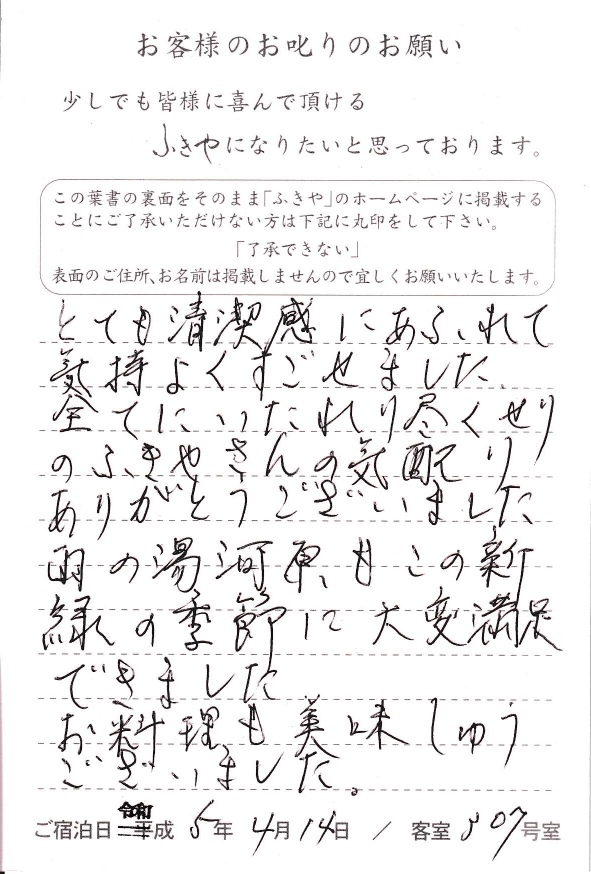 お客様のお叱りのお願い
少しでも皆様に喜んで頂ける
ふきやになりたいと思っております。
この葉書の裏面をそのまま「ふきや」のホームページに掲載する
ことにご了承いただけない方は下記に丸印をして下さい。
「了承できない」
表面のご住所、お名前は掲載しませんので宜しくお願いいたします。
とても清潔感にあふれて
気持よくすごせました、
全てにいたれり尽くせり
のふきやさんの気配り
ありがとうございました
雨の湯河原、もこの新
緑の季節に大変満足
できました
お料理も美味しゅう
ございました。
ご宿泊日 令和 平成 5年 4月14日 / 客室 807号室